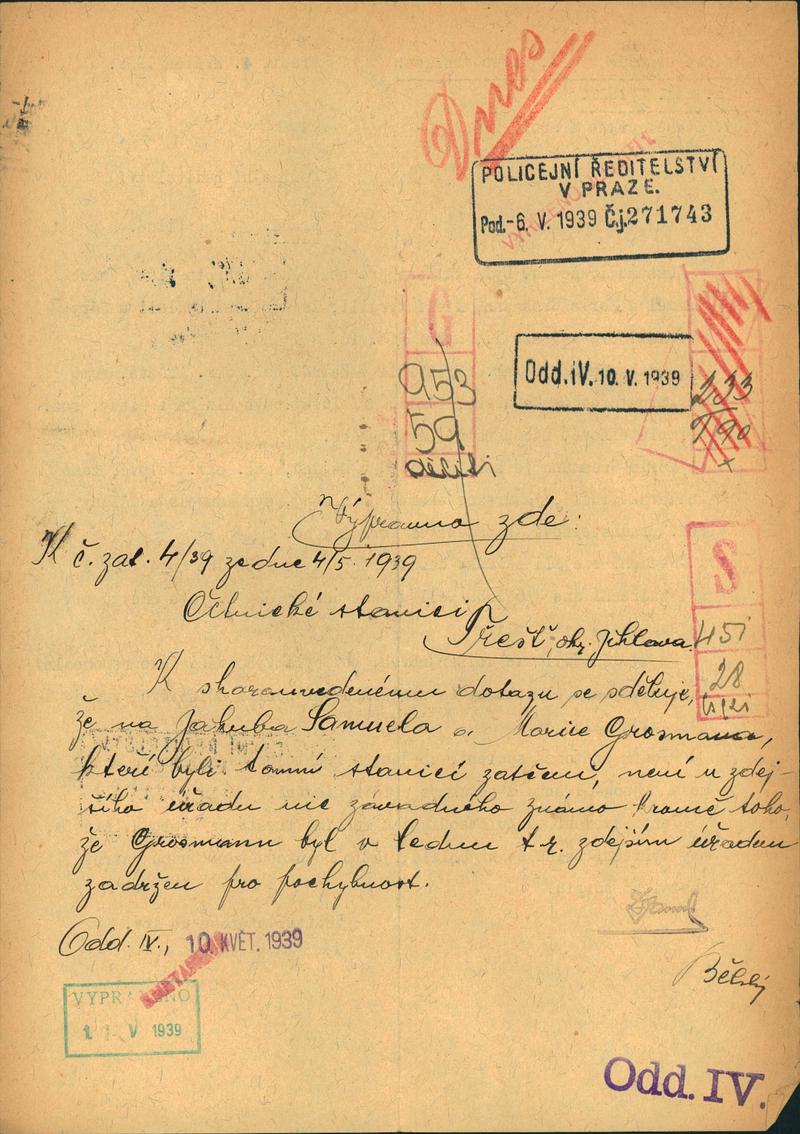 Dnes
POLICEJNÍ ŘEDITELSTVÍ
V PRAZE.
Pod.-6. V. 1939 Č.j. 271743
G
953
59
děliti
Odd. IV. 10. V. 1939
233
T90
+
Výpravna zde:
K č. zat. 4/39 ze dne 4/5. 1939
Četnické stanici
Třešť, okr. Jihlava.
S
451
28
K shorauvedenému dotazu se sděluje,
že na Jakuba Samuela a Morice Grosmana,
kteří byli tamní stanicí zatčeni, není u zdej-
šího úřadu nic závadného známo kromě toho,
že Grosmann byl v lednu t.r. zdejším úřadem
zadržen pro pochybnost.
Odd. IV., 10. KVĚT. 1939
Bělský
VYPRAVENO
V 1939
Odd. IV.